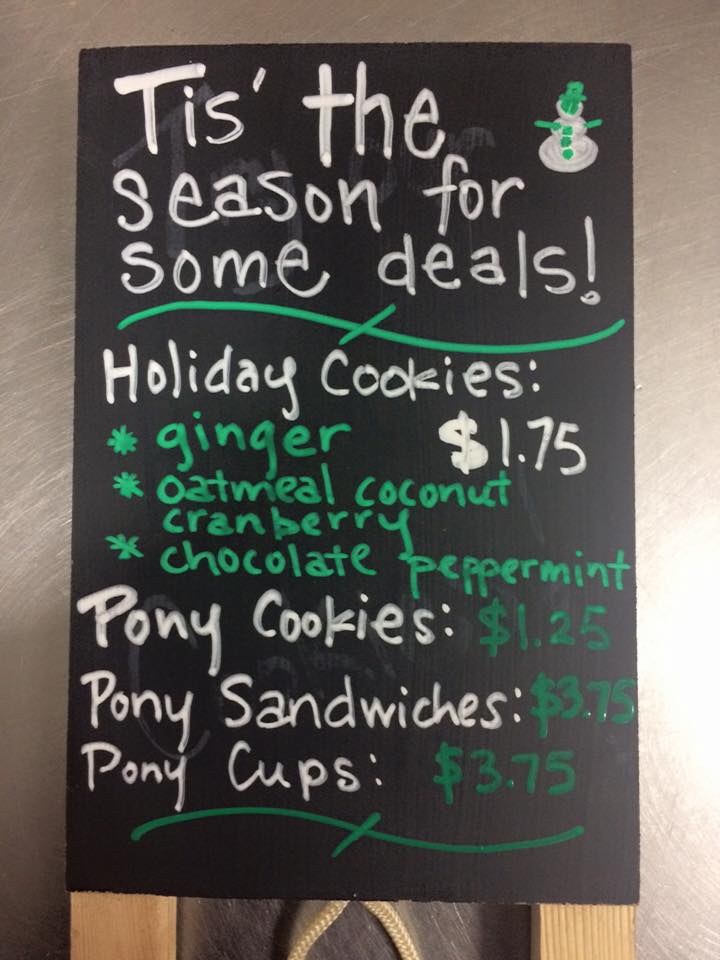 Tis' the
season for
some deals!
Holiday Cookies:
* ginger $1.75
* oatmeal coconut
cranberry
* chocolate peppermint
Pony Cookies: $1.25
Pony Sandwiches: $3.75
Pony Cups: $3.75